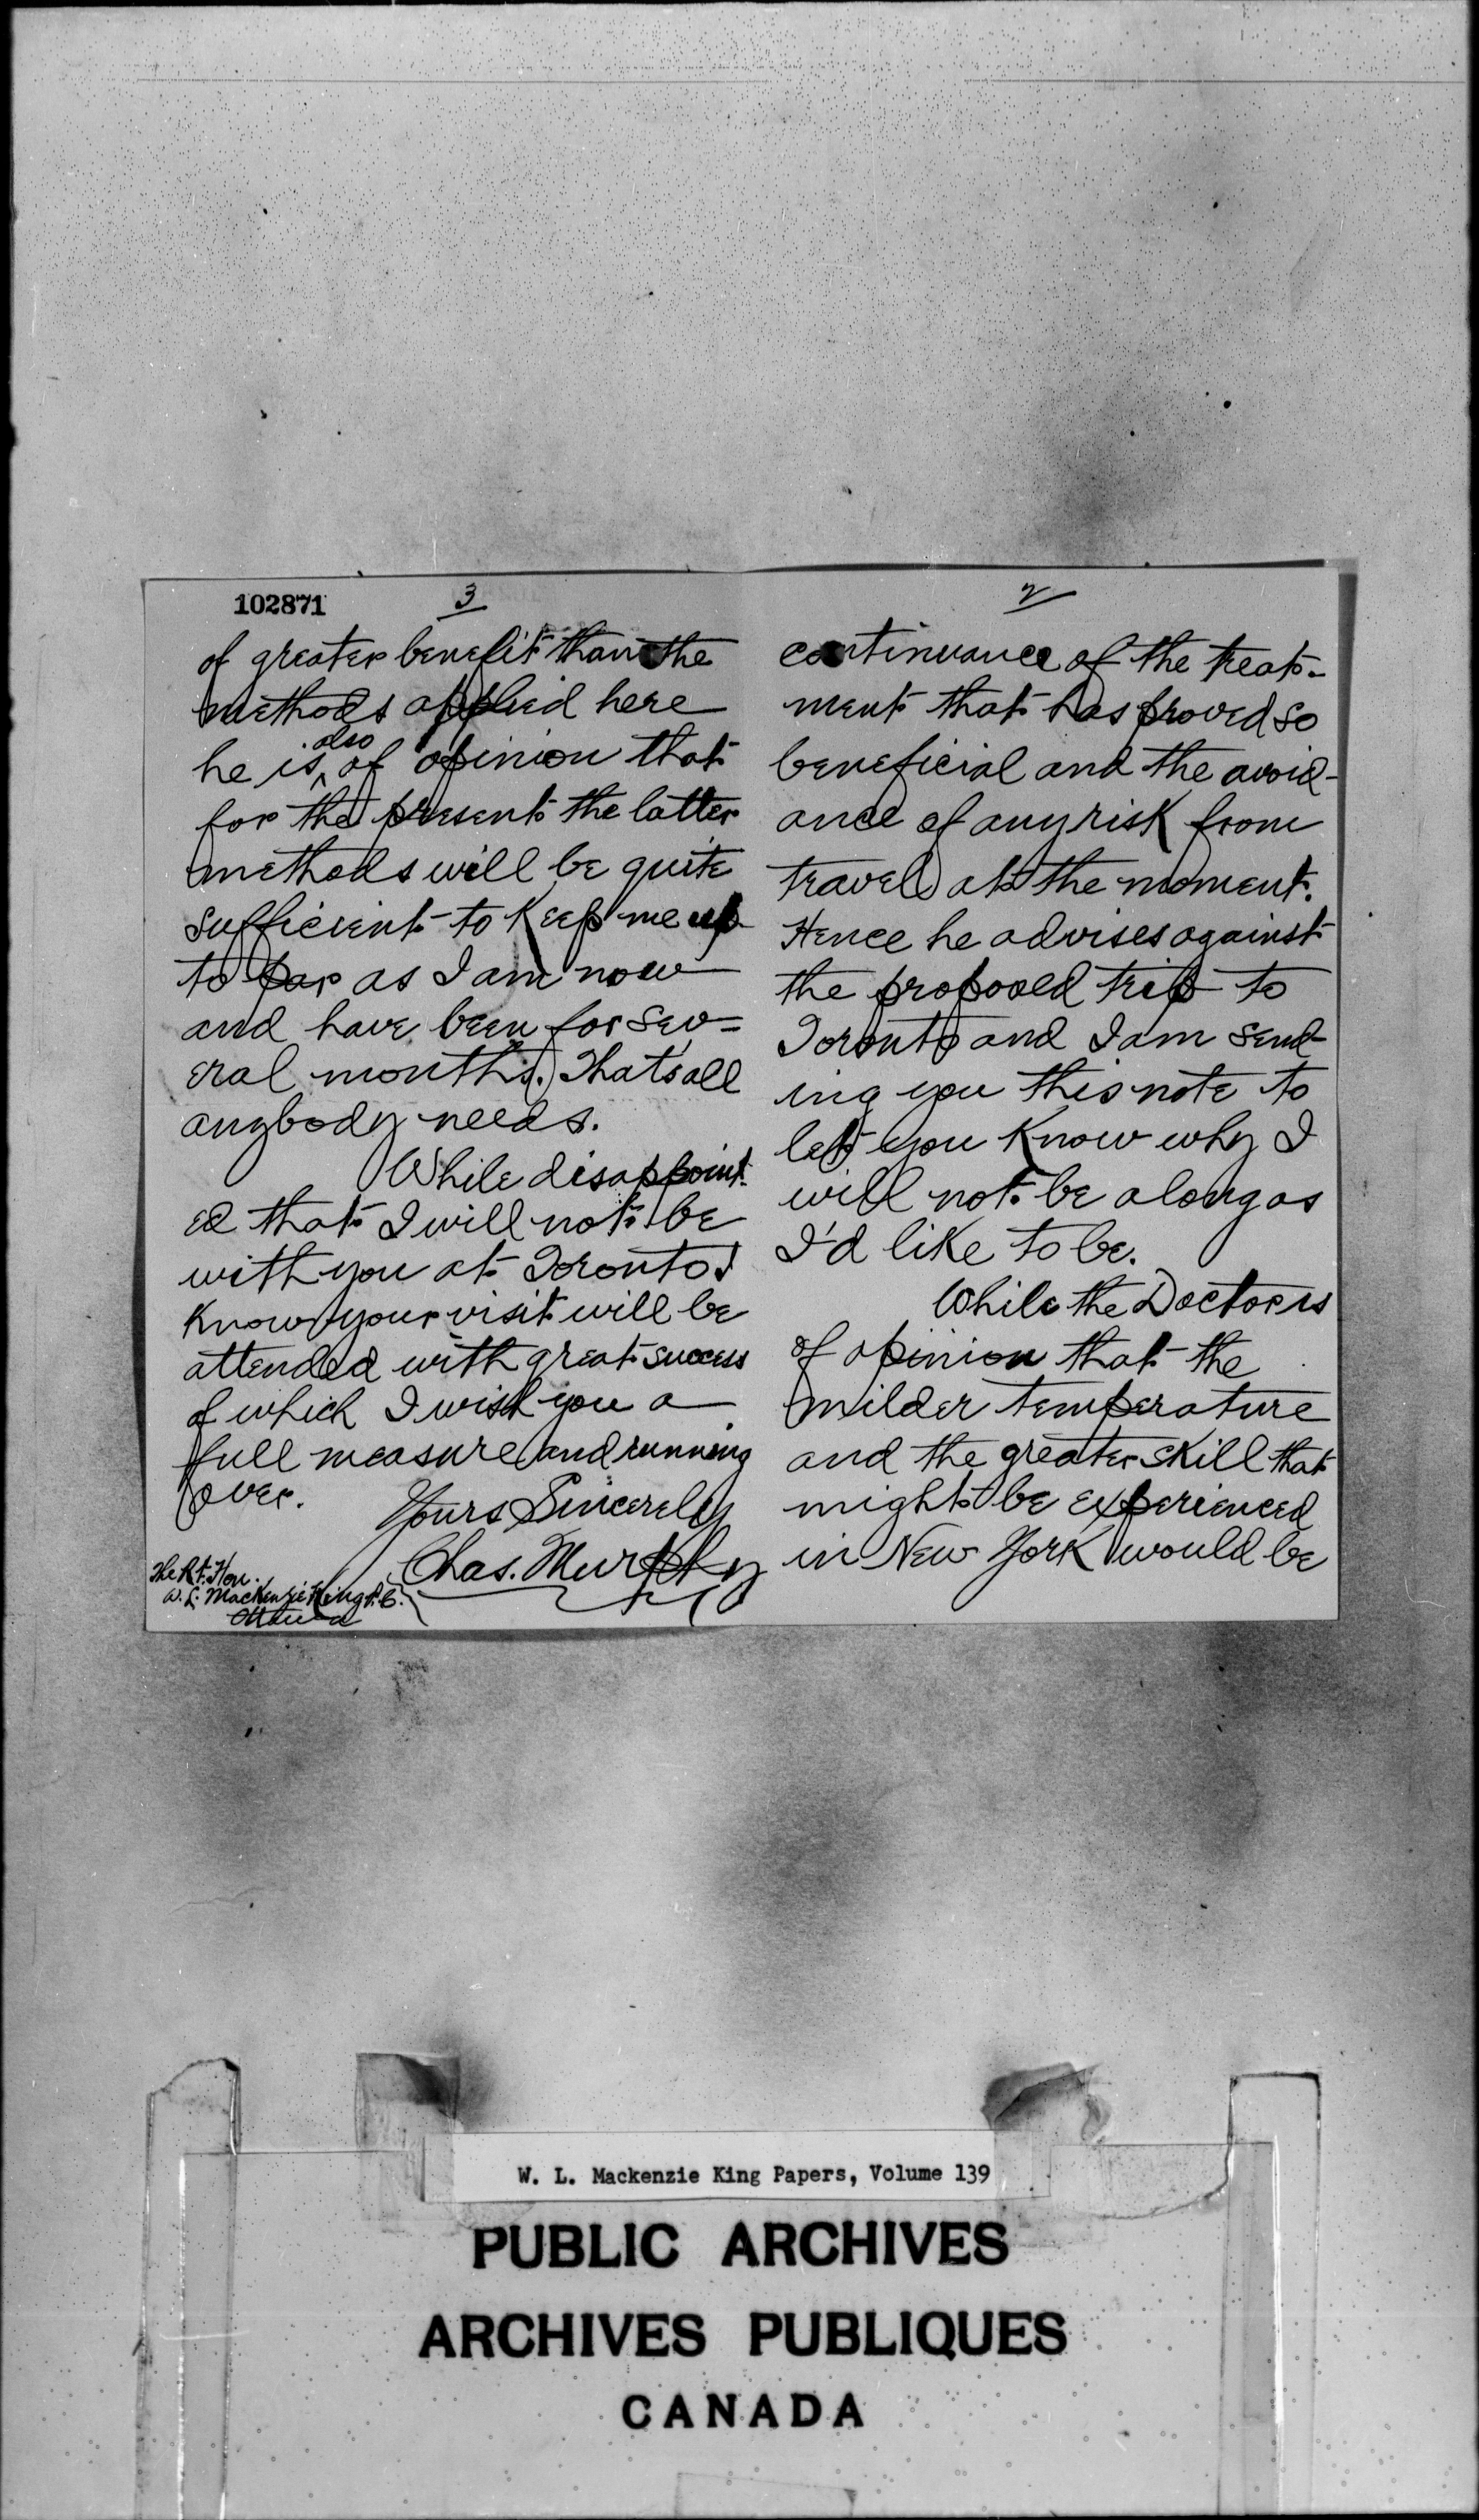 102871
2
continuance of the treat-
ment that has proved so
beneficial and the avoid-
ance of any risk from
travel at the moment.
Hence he advises against
the proposed trip to
Toronto and I am send-
ing you this note to
let you know why I
will not be along as
I'd like to be.
While the Doctor is
of opinion that the
milder temperature
and the greater skill that
might be experienced
in New York would be
3
of greater benefit than the
methods applied here
he is also of opinion that
for the present the latter
methods will be quite
sufficient to keep me up
to par as I am now
and have been for sev=
eral months. That's all
anybody needs.
While disappoint-
ed that I will not be
with you at Toronto I
know your visit will be
attended with great success
of which I wish you a
full measure and running
over.
Yours Sincerely
Chas. Murphy
The Rt. Hon.
W. L. MacKenzie King P.C.
Ottawa
W. L. Mackenzie King Papers, Volume 139
PUBLIC ARCHIVES
ARCHIVES PUBLIQUES
CANADA